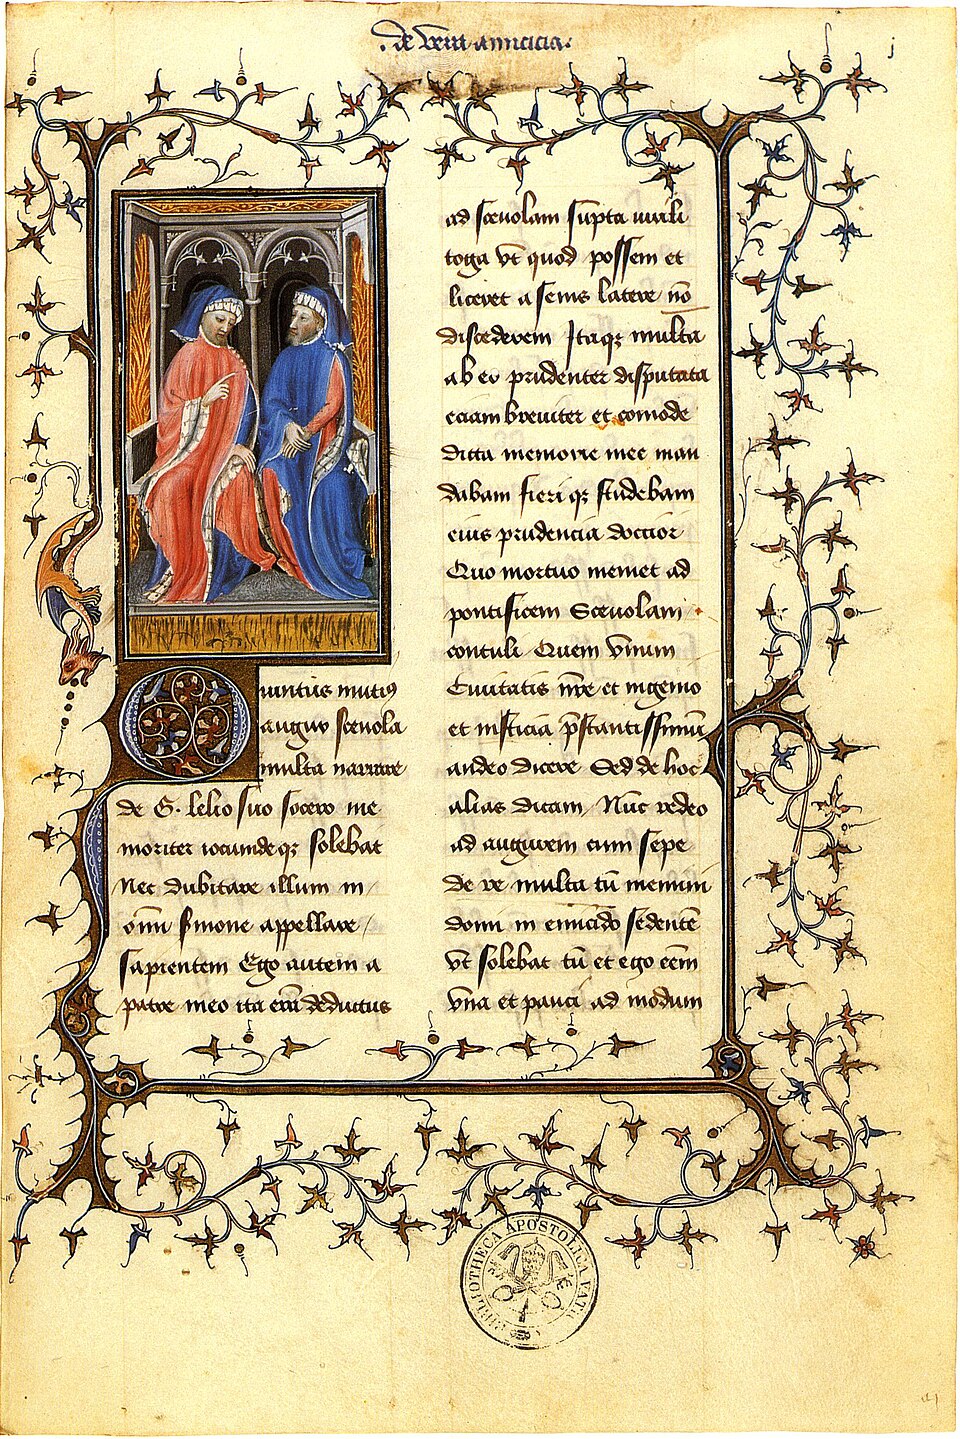 de vera amicicia
j
Quintus mutius
augur scevola
multa narrare
de G. lelio suo socero me
moriter iocundeqz solebat
Nec dubitare illum in
omni sermone appellare
sapientem Ego autem a
patre meo ita eram deductus
ad scevolam supta virili
toga vt quod possem et
liceret a senis latere no
discederem Itaqz multa
ab eo prudenter disputata
eciam breviter et comode
dicta memorie mee man
dabam fieri qz studebam
eius prudencia doctior
Quo mortuo memet ad
pontificem Scevolam
contuli Quem vnum
Civitatis nre et ingenio
et insticia pstantissimum
audeo dicere Sed de hoc
alias dicam Nuc redeo
ad augurem cum sepe
de re multa tu memini
domi in emiciclo sedente
vt solebat tu et ego eem
vna et pauci ad modum
BIBLIOTHECA APOSTOLICA VATIC